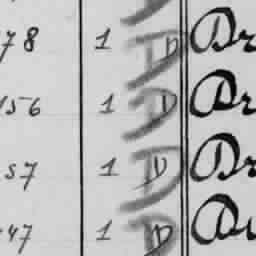 78 1 D Dr
156 1 D Dr
57 1 D Dr
47 1 D